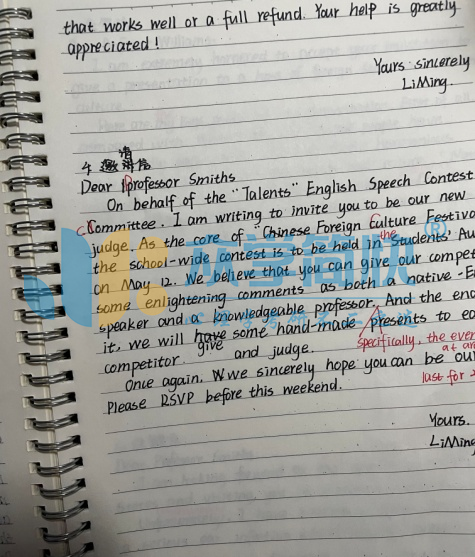 that works well or a full refund. Your help is greatly
appreciated!
Yours sincerely
LiMing.
4 邀请信
Dear Professor Smiths
On behalf of the "Talents" English Speech Contest
Committee. I am writing to invite you to be our new
judge. As the core of "Chinese Foreign Culture Festiva
the school-wide contest is to be held in the Students' Au
on May 12. We believe that you can give our compet
some enlightening comments as both a native-E
speaker and a knowledgeable professor. And the end
it, we will have some hand-made presents to ea
competitor give and judge. specifically, the even
at an
Once again, We sincerely hope you can be ou
last for
Please RSVP before this weekend.
Yours.
LiMing